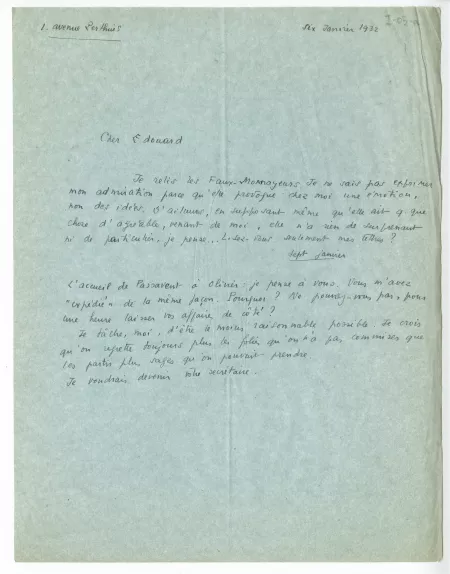 1. avenue
six Janvier 1932
Cher Edouard
Je relis les Faux-Monnayeurs. Je ne sais pas exprimer
mon admiration parce qu'elle provoque chez moi une émotion,
non des idées. D'ailleurs, en supposant même qu'elle ait q.que
chose d'agréable, venant de moi, elle n'a rien de surprenant
ni de particulier, je pense... Lisez-vous seulement mes lettres ?
sept janvier
L'accueil de Passavent à Olivier : je pense à vous. Vous m'avez
"expédié" de la même façon. Pourquoi ? Ne pouvez-vous pas, pour
une heure laisser vos affaires de côté ?
Je tâche, moi, d'être le moins raisonnable possible. Je crois
qu'on regrette toujours plus les folies qu'on n'a pas commises que
les partis plus sages qu'on pouvait prendre
Je voudrais devenir votre secrétaire.